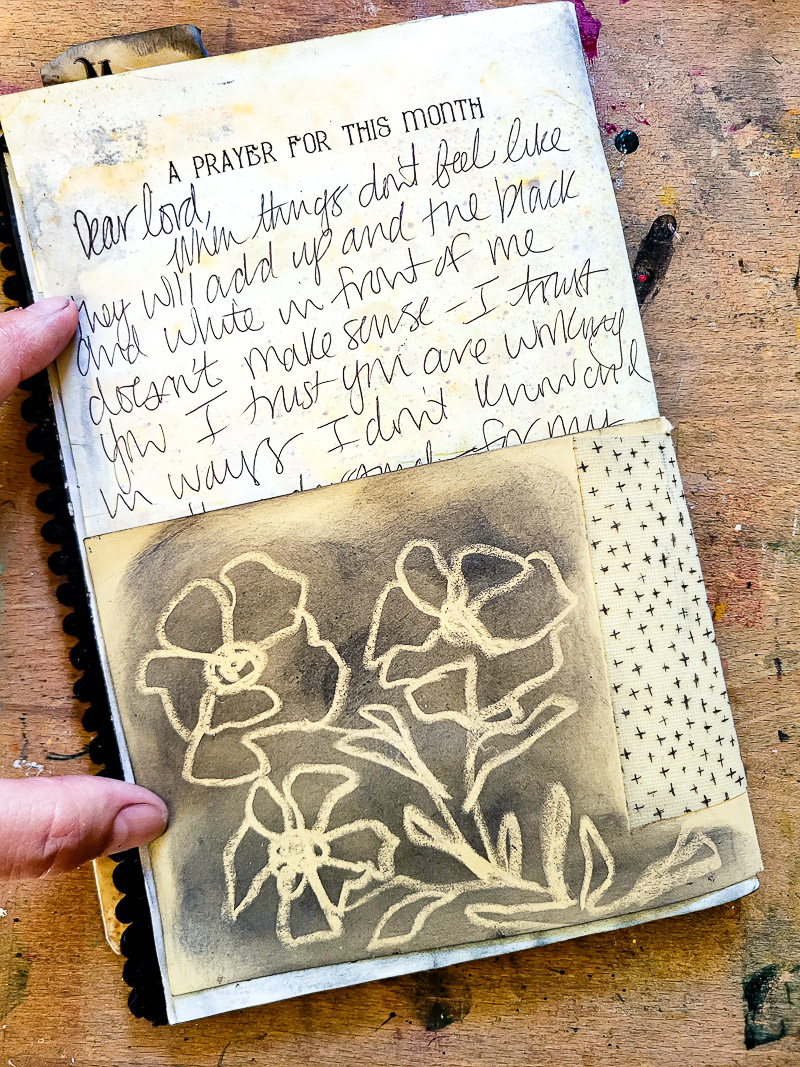 M
A PRAYER FOR THIS MONTH
Dear lord,
When things don't feel like
they will add up and the black
and white in front of me
doesn't make sense - I trust
you I trust you are working
in ways I don't know and
for my